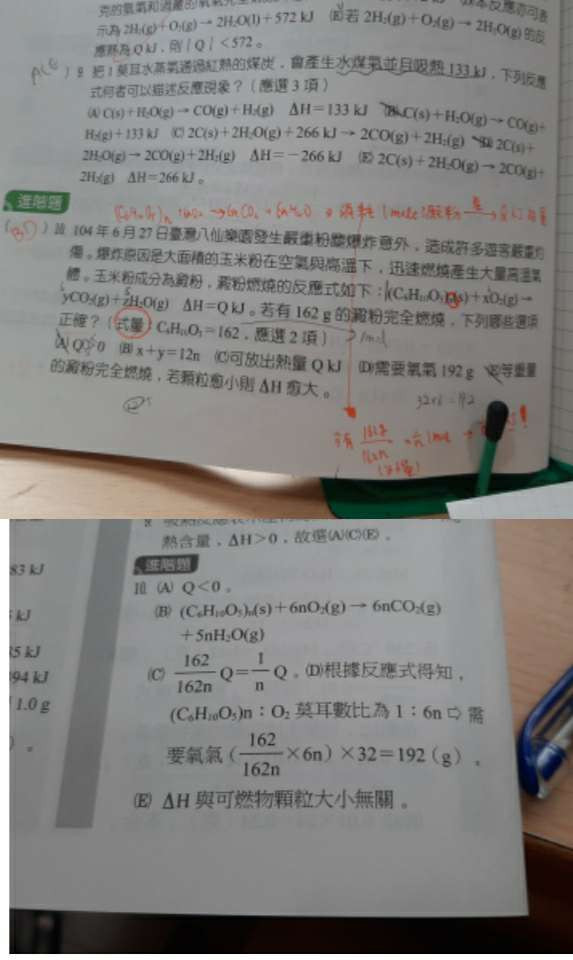 示為 2H₂(g)+O₂(g)→2H₂O(l)+572 kJ (E)若 2H₂(g)+O₂(g)→2H₂O(g) 的反
應熱為 Q kJ,則|Q|<572。
9. 把 1 莫耳水蒸氣通過紅熱的煤炭,會產生水煤氣並且吸熱 133 kJ,下列反應
式何者可以描述反應現象?(應選 3 項)
(A) C(s)+H₂O(g)→CO(g)+H₂(g) ΔH=133 kJ (B) C(s)+H₂O(g)→CO(g)+
H₂(g)+133 kJ (C) 2C(s)+2H₂O(g)+266 kJ→2CO(g)+2H₂(g) (D) 2C(s)+
2H₂O(g)→2CO(g)+2H₂(g) ΔH=-266 kJ (E) 2C(s)+2H₂O(g)→2CO(g)+
2H₂(g) ΔH=266 kJ。
進階題
(BD) 10. 104 年 6 月 27 日臺灣八仙樂園發生嚴重粉塵爆炸意外,造成許多遊客嚴重灼
傷。爆炸原因是大面積的玉米粉在空氣與高溫下,迅速燃燒產生大量高溫氣
體。玉米粉成分為澱粉,澱粉燃燒的反應式如下:(C₆H₁₀O₅)n(s)+xO₂(g)→
yCO₂(g)+zH₂O(g) ΔH=Q kJ。若有 162 g 的澱粉完全燃燒,下列哪些選項
正確?(式量:C₆H₁₀O₅=162,應選 2 項)
(A) Q>0 (B) x+y=12n (C)可放出熱量 Q kJ (D)需要氧氣 192 g (E)等重量
的澱粉完全燃燒,若顆粒愈小則 ΔH 愈大。
32×6=192
熱含量,ΔH>0,故選(A)(C)(E)。
進階題
10. (A) Q<0。
(B) (C₆H₁₀O₅)n(s)+6nO₂(g)→6nCO₂(g)
+5nH₂O(g)
(C) 162/162n Q=1/n Q。(D)根據反應式得知,
(C₆H₁₀O₅)n:O₂ 莫耳數比為 1:6n⇨需
要氧氣(162/162n×6n)×32=192(g)。
(E) ΔH 與可燃物顆粒大小無關。
83 kJ
kJ
5 kJ
94 kJ
1.0 g